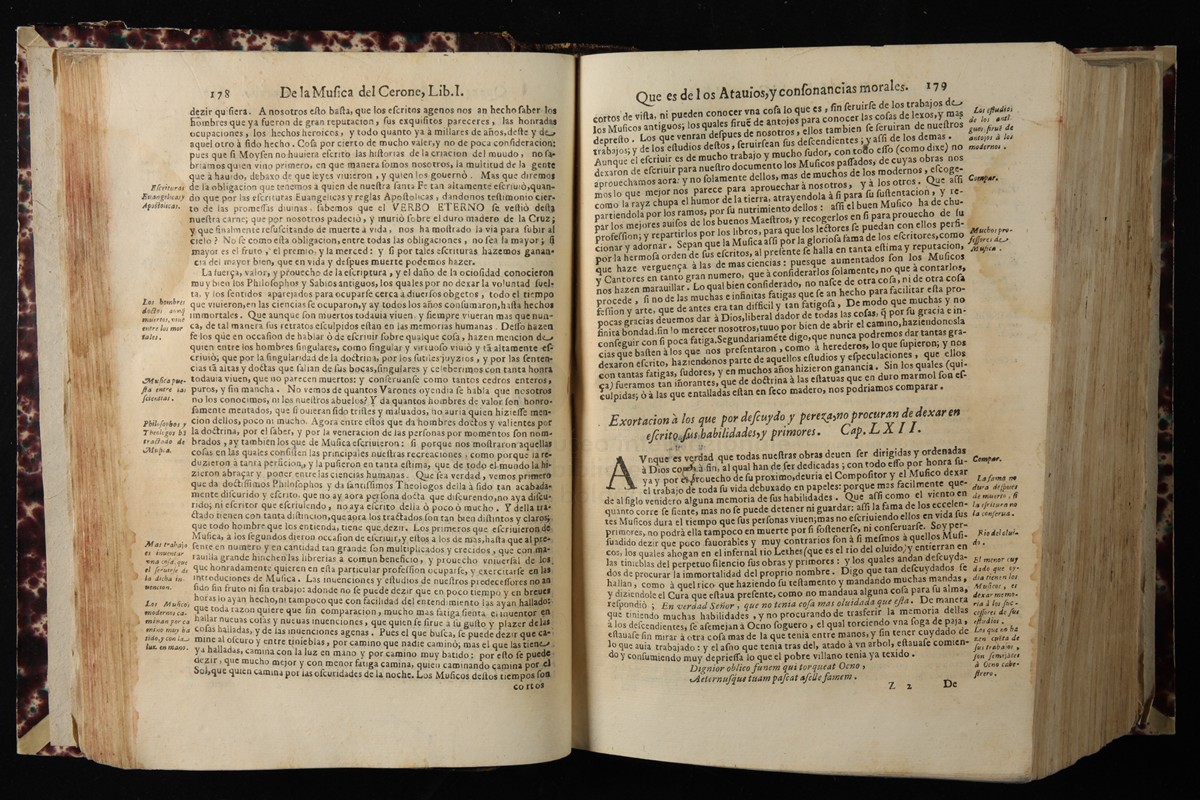 178 De la Musica del Cerone, Lib. I.
dezir quisiera. A nosotros esto basta, que los escritos agenos nos an hecho saber los
hombres que ya fueron de gran reputacion, sus exquisitos pareceres, las honradas
ocupaciones, los hechos heroicos, y todo quanto ya à millares de años, deste y de
aquel otro à sido hecho. Cosa por cierto de mucho valer, y no de poca consideracion:
pues que si Moysen no huuiera escrito las historias de la criacion del mundo, no sa-
briamos quien vino primero, en que manera somos nosotros, la multitud de la gente
que à hauido, debaxo de que leyes viuieron, y quien los gouernò. Mas que diremos
de la obligacion que tenemos à quien de nuestra santa Fe tan altamente escriuiò, quan-
do que por las escrituras Euangelicas y reglas Apostolicas, dandonos testimonio cier-
to de las promessas diuinas, sabemos que el VERBO ETERNO se vestiò desta
nuestra carne; que por nosotros padeciò, y muriò sobre el duro madero de la Cruz;
y que finalmente resuscitando de muerte à vida, nos ha mostrado la via para subir al
cielo? No se como esta obligacion, entre todas las obligaciones, no sea la mayor; si
mayor es el fruto, el premio, y la merced: y si por tales escrituras hazemos ganan-
cia del mayor bien, que en vida y despues muerte podemos hazer.
La fuerça, valor, y prouecho de la escriptura, y el daño de la ociosidad conocieron
muy bien los Philosophos y Sabios antiguos, los quales por no dexar la voluntad suel-
ta, y los sentidos aparejados para ocuparse cerca à diuersos obgetos, todo el tiempo
que viuieron, en las ciencias se ocuparon, y ay todos los años consumaron, hasta hechos
immortales. Que aunque son muertos todauia viuen, y siempre viueran mas que nun-
ca, de tal manera sus retratos esculpidos estan en las memorias humanas. Desso hazen
fe los que en occasion de hablar ò de escriuir sobre qualque cosa, hazen mencion de
quien entre los hombres singulares, como singular y virtuoso viuiò y tã altamente es-
criuiò, que por la singularidad de la doctrina, por los sutiles juyzios, y por las senten-
cias tã altas y doctas que salian de sus bocas, singulares y celeberimos con tanta honra
todauia viuen, que no parecen muertos: y conseruanse como tantos cedros enteros,
puros, y sin mancha. No vemos de quantos Varones oyendia se habla que nosotros
no los conocimos, ni los nuestros abuelos? Y da quantos hombres de valor son honro-
samente mentados, que si ouieran sido tristes y maluados, no auria quien hiziesse men-
cion dellos, poco ni mucho. Agora entre estos que da hombres doctos y valientes por
la doctrina, por el saber, y por la veneracion de las personas por momentos son nom-
brados, ay tambien los que de Musica escriuieron: si porque nos mostraron aquellas
cosas en las quales consisten las principales nuestras recreaciones, como porque la re-
duzieron à tanta perficion, y la pusieron en tanta estima, que de todo el mundo la hi-
zieron abraçar y poner entre las ciencias humanas. Que sea verdad, vemos primero
que da doctissimos Philosophos y da santissimos Theologos della à sido tan acabada-
mente discurido y escrito, que no ay aora persona docta que discurendo, no aya discu-
rido; ni escritor que escriuiendo, no aya escrito della ò poco ò mucho. Y della tra-
ctado tienen con tanta distincion, que aora los tractados son tan bien distintos y claros,
que todo hombre que los entienda, tiene que dezir. Los primeros que escriuieron de
Musica, à los segundos dieron occasion de escriuir, y estos à los de mas, hasta que al pre-
sente en numero y en cantidad tan grande son multiplicados y crecidos, que con ma-
rauilla grande hinchen las librerias à comun beneficio, y prouecho vniuersal de los
que honradamente quieren en esta particular profession ocuparse, y exercitarse en las
introduciones de Musica. Las inuenciones y estudios de nuestros predecessores no an
sido sin fruto ni sin trabajo: adonde no se puede dezir que en poco tiempo y en breues
horas lo ayan hecho, ni tampoco que con facilidad del entendimiento las ayan hallado:
que toda razon quiere que sin comparacion, mucho mas fatiga sienta el inuentor en
hallar nueuas cosas y nueuas inuenciones, que quien se sirue à su gusto y plazer de las
cosas halladas, y de las inuenciones agenas. Pues el que busca, se puede dezir que ca-
mine al oscuro y entre tinieblas, por camino que nadie caminò, mas el que las tiene
ya halladas, camina con la luz en mano y por camino muy batido: por esto se puede
dezir, que mucho mejor y con menor fatiga camina, quien caminando camina por el
Sol, que quien camina por las oscuridades de la noche. Los Musicos destos tiempos son
cortos
Escrituras
Euangelicas y
Apostolicas.
Los hombres
doctos aunq̃
muertos, viuẽ
entre los mor
tales.
Musica pue-
sta entre las
sciencias.
Philosophos y
Theologos hã
tractado de
Musica.
Mas trabajo
es inuentar
vna cosa, que
el seruirse de
la dicha in-
uencion.
Los Musicos
modernos ca-
minan por ca
mino muy ba
tido, y con la
luz en mano.
Que es de los Atauios, y consonancias morales. 179
cortos de vista, ni pueden conocer vna cosa lo que es, sin seruirse de los trabajos de
los Musicos antiguos; los quales siruẽ de antojos para conocer las cosas de lexos, y mas
depresto. Los que vernan despues de nosotros, ellos tambien se seruiran de nuestros
trabajos; y de los estudios destos, seruirsean sus descendientes; y assi de los demas.
Aunque el escriuir es de mucho trabajo y mucho sudor, con todo esso (como dixe) no
dexaron de escriuir para nuestro documento los Musicos passados, de cuyas obras nos
aprouechamos aora: y no solamente dellos, mas de muchos de los modernos, escoge-
mos lo que mejor nos parece para aprouechar à nosotros, y à los otros. Que assi
como la rayz chupa el humor de la tierra, atrayendola à si para su sustentacion, y re-
partiendola por los ramos, por su nutrimiento dellos: assi el buen Musico ha de chu-
par los mejores auisos de los buenos Maestros, y recogerlos en si para prouecho de su
profession; y repartirlos por los libros, para que los lectores se puedan con ellos perfi-
cionar y adornar. Sepan que la Musica assi por la gloriosa fama de los escritores, como
por la hermosa orden de sus escritos, al presente se halla en tanta estima y reputacion,
que haze verguença à las de mas ciencias: puesque aumentados son los Musicos
y Cantores en tanto gran numero, que à considerarlos solamente, no que à contarlos,
nos hazen marauillar. Lo qual bien considerado, no nasce de otra cosa, ni de otra cosa
procede, si no de las muchas e infinitas fatigas que se an hecho para facilitar esta pro-
fession y arte, que de antes era tan difficil y tan fatigosa. De modo que muchas y no
pocas gracias deuemos dar à Dios, liberal dador de todas las cosas, q̃ por su gracia e in-
finita bondad, sin lo merecer nosotros, tuuo por bien de abrir el camino, haziendonosla
conseguir con si poca fatiga. Segundariamẽte digo, que nunca podremos dar tantas gra-
cias que basten à los que nos presentaron, como à herederos, lo que supieron; y nos
dexaron escrito, haziendonos parte de aquellos estudios y especulaciones, que ellos
con tantas fatigas, sudores, y en muchos años hizieron ganancia. Sin los quales (qui-
çà) fueramos tan iñorantes, que de doctrina à las estatuas que en duro marmol son es-
culpidas; ò à las que entalladas estan en seco madero, nos podriamos comparar.
Exortacion à los que por descuydo y pereza, no procuran de dexar en
escrito, sus habilidades, y primores. Cap. LXII.
AVnque es verdad que todas nuestras obras deuen ser dirigidas y ordenadas
à Dios como à fin, al qual han de ser dedicadas; con todo esso por honra su-
ya y por el prouecho de su proximo, deuria el Compositor y el Musico dexar
el trabajo de toda su vida debuxado en papeles: porque mas facilmente que-
de al siglo venidero alguna memoria de sus habilidades. Que assi como el viento en
quanto corre se siente, mas no se puede detener ni guardar: assi la fama de los excelen-
tes Musicos dura el tiempo que sus personas viuen; mas no escriuiendo ellos en vida sus
primores, no podrà ella tampoco en muerte por si sostenerse, ni conseruarse. Soy per-
suadido dezir que poco fauorables y muy contrarios son à si mesmos à quellos Musi-
cos, los quales ahogan en el infernal rio Lethes (que es el rio del oluido) y entierran en
las tinieblas del perpetuo silencio sus obras y primores: y los quales andan descuyda-
dos de procurar la immortalidad del proprio nombre. Digo que tan descuydados se
hallan, como à quel rico que haziendo su testamento y mandando muchas mandas,
y diziendole el Cura que estaua presente, como no mandaua alguna cosa para su alma,
respondiò; En verdad Señor, que no tenia cosa mas oluidada que esta. De manera
que tiniendo muchas habilidades, y no procurando de trasferir la memoria dellas
à los descendientes, se asemejan à Ocno soguero, el qual torciendo vna soga de paja,
estauase sin mirar à otra cosa mas de la que tenia entre manos, y sin tener cuydado de
lo que auia trabajado: y el asno que tenia tras del, atado à vn arbol, estauase comien-
do y consumiendo muy depriessa lo que el pobre villano tenia ya texido.
Dignior oblico funem qui torqueat Ocno,
Aeternusque tuam pascat aselle famem.
Z 2 De
Los estudios
de los anti-
guos siruẽ de
antojos à los
modernos.
Compar.
Muchos pro-
fessores de
Musica.
Compar.
La fama no
dura despues
de muerto, si
la escritura no
la conserua.
Rio del olui-
do.
El menor cuy
dado que oy-
dia tienen los
Musicos, es
dexar memo-
ria à los suc-
cessores de sus
estudios.
Los que no ha
zen cuẽta de
sus trabajos,
son semejãtes
à Ocno cabe-
strero.